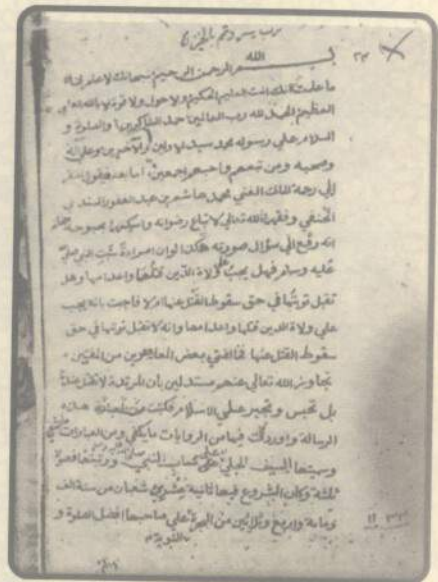 رب يسر وتمم بالخير
٢٣
بسم الله الرحمن الرحيم سبحانك لا علم لنا الا
ما علمتنا انك انت العليم الحكيم ولا حول ولا قوة الا بالله العلي
العظيم الحمد لله رب العالمين حمد الشاكرين والصلوة و
السلام علي رسوله محمد سيد الاولين والآخرين وعلي آله
وصحبه ومن تبعهم واحبهم اجمعين اما بعد فيقول
الي رحمة الملك الغني محمد هاشم بن عبد الغفور السندي
الحنفي وفقه الله تعالي لاتباع رضوانه واسكنه بحبوحة
انه وقع الي سؤال صورته هكذا لو ان امراءة سبّت النبي صلي
عليه وسلم فهل يجب علي ولاة الدين قتلها واعدامها وهل
تقبل توبتها في حق سقوط القتل عنها ام لا فاجبت بانه يجب
علي ولاة الدين قتلها واعدامها وانه لا تقبل توبتها في حق
سقوط القتل عنها فافتي بعض المعاصرين من المفتين
تجاوز الله تعالي عنهم مستدلين بان المرتدة لا تقتل عندنا
بل تحبس وتجبر علي الاسلام فكتبت هذه
الرسالة واوردت فيها من الروايات ما يكفي ومن العبارات
وسميتها السيف الجلي علي ساب النبي ورتبتها فصول
ثلثة وكان الشروع فيها ثانية عشري شعبان من سنة الف
وماية واربع وثلاثين من الهجرة علي صاحبها افضل الصلوة و